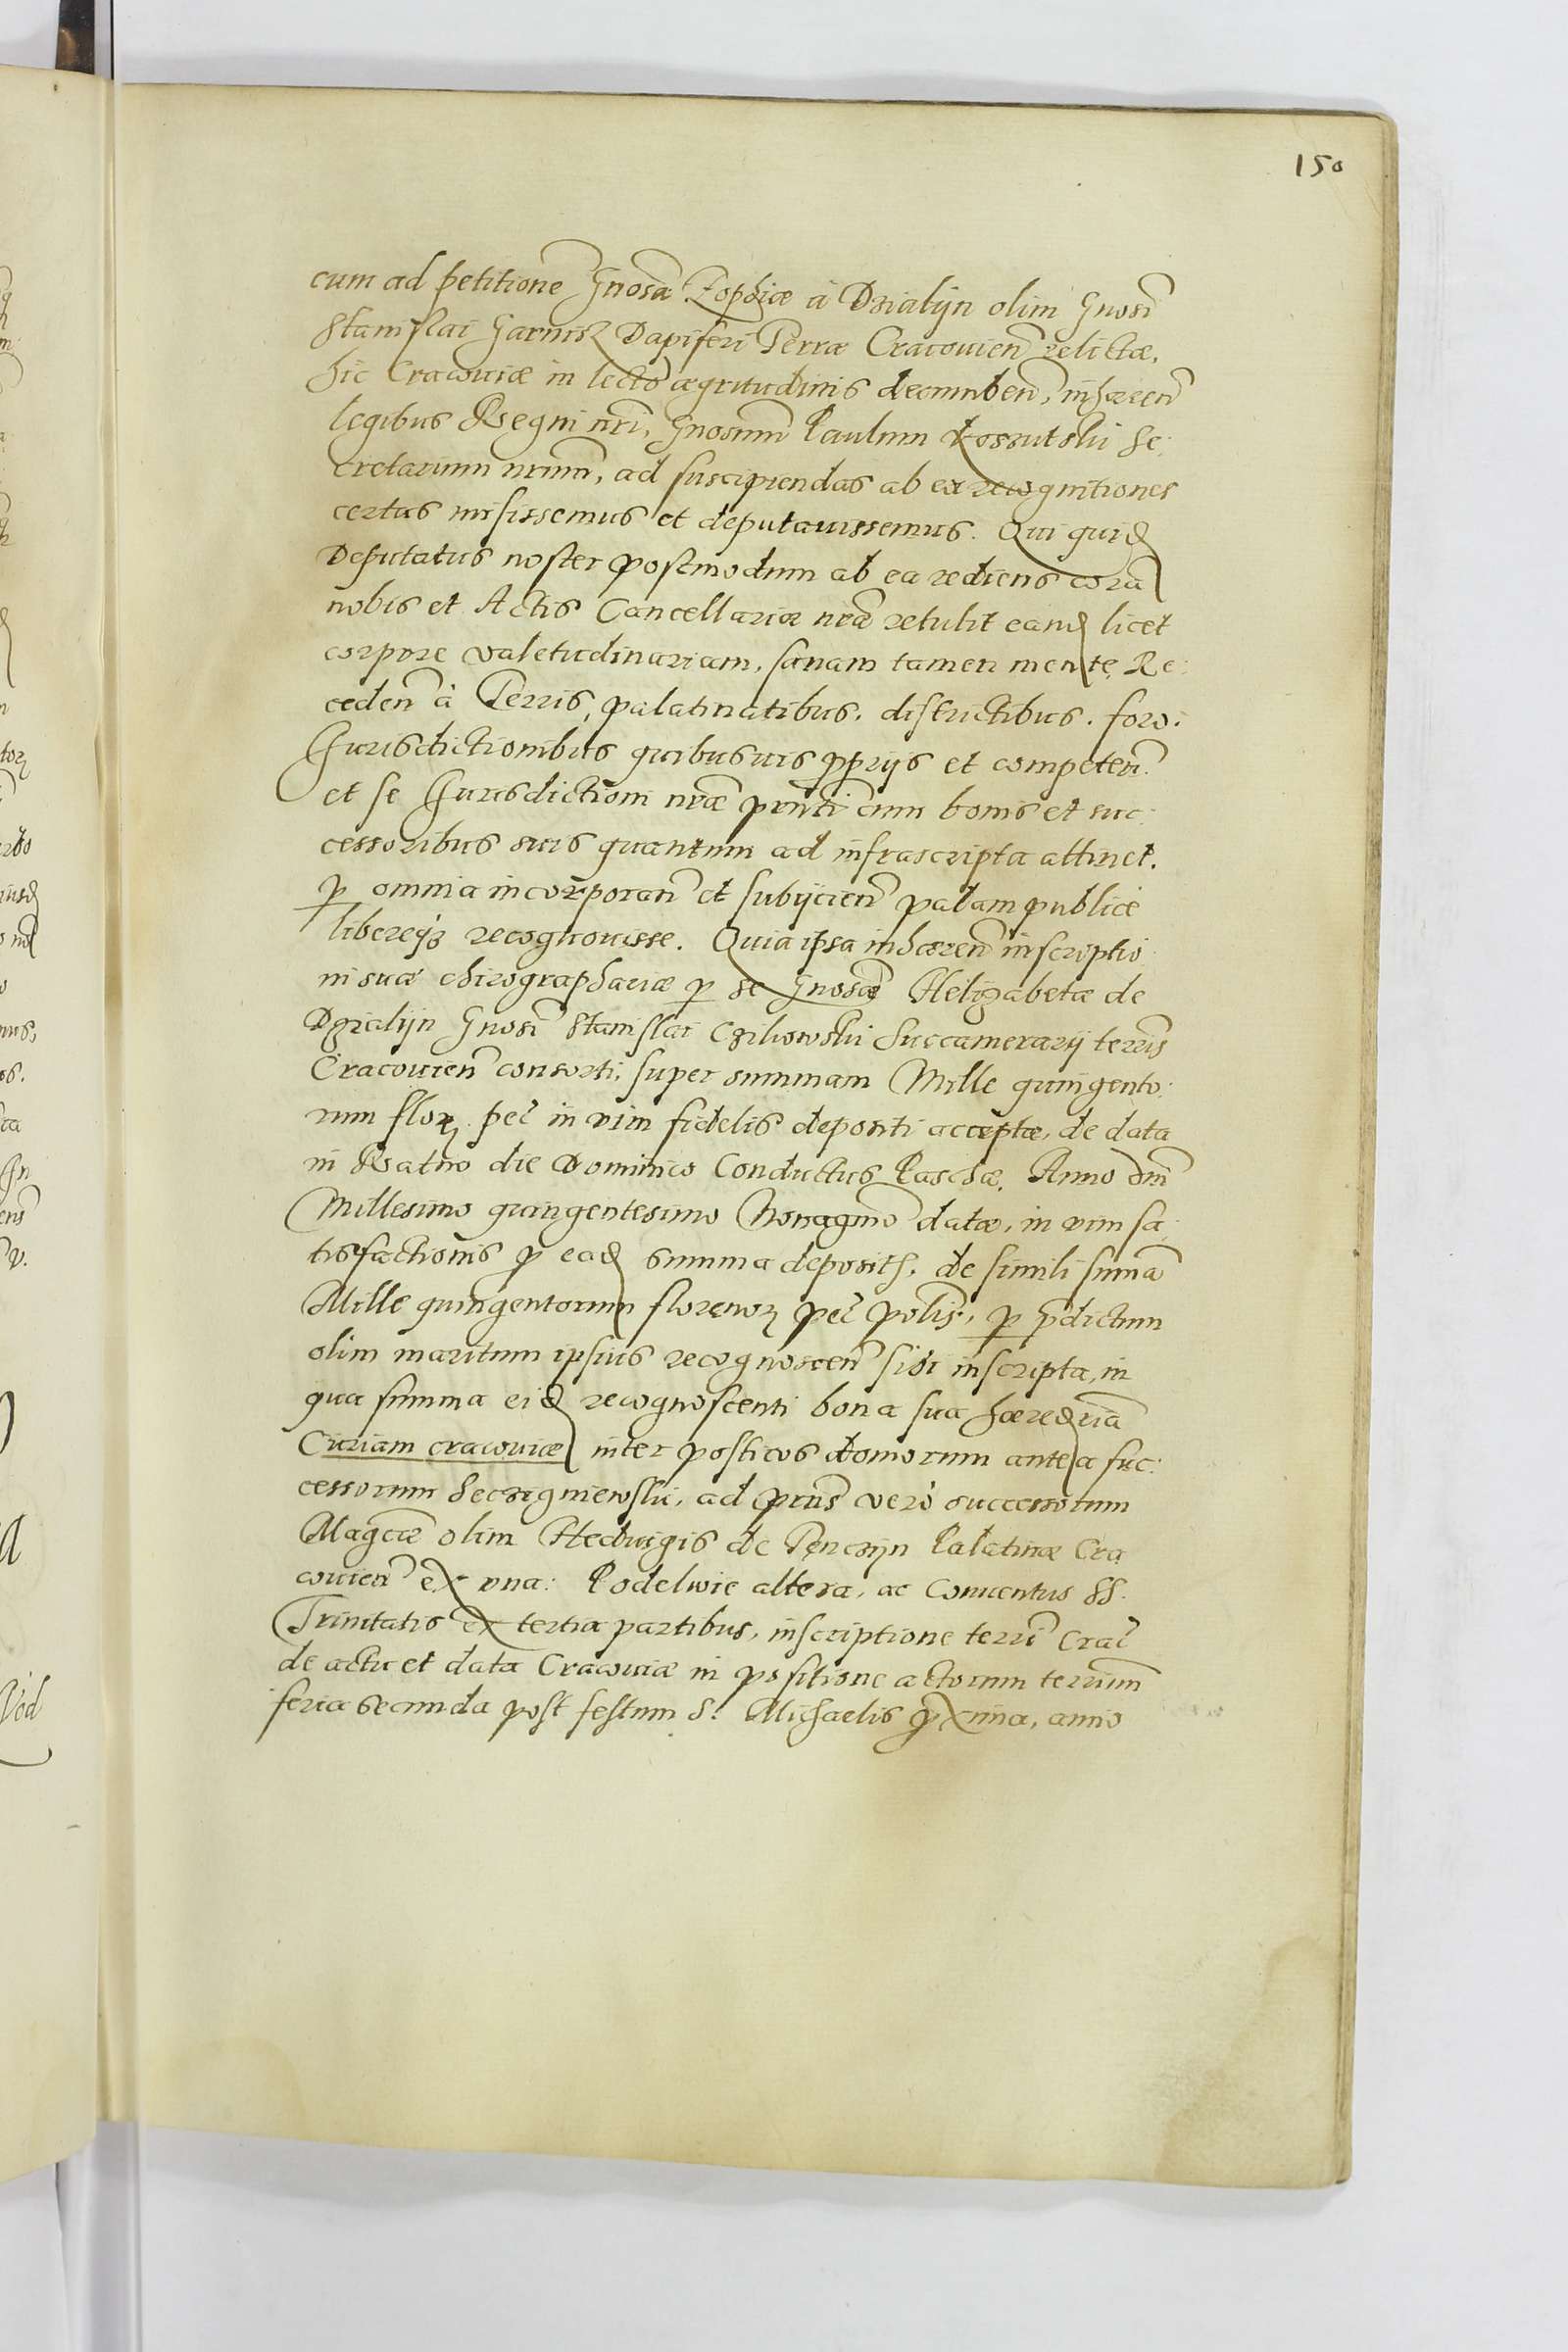 150
cum ad petitionē Gnosæ Zophiæ à Dzialÿn olim Gnosi
Stanislai Garnisz Dapiferi Terræ Cracouieñ relictæ,
hic Cracouiæ in lecto ægritudinis decumbeñ, inhæreñ
legibus Regni nri, Gnosum Paulum Kossutski Se:
cretarium nrum, ad suscipiendas ab ea recognitiones
certas misissemus et deputauissemus. Qui quid
Deputatus noster postmodum ab ea rediens corā
nobis et Actis Cancellariæ nræ retulit eand licet
corpore valetudinariam, sanam tamen mente, Re:
cedeñ à Terris, palatinatibus, districtibus, foro,
Iurisdictionibus quibusuis pprijs et competeñ,
et se Iurisdictioni nræ pnti cum bonis et suc:
cessoribus suis quantum ad infrascripta attinet,
p omnia incorporañ et subijcieñ palam publicè
libereq3 recognouisse. Quia ipsa inhæreñ inscriptio
ni suæ chirographariæ p se Gnosæ Helizabetæ de
Dzialijn Gnosi Stanislai Czikowski Succamerarij terris
Cracouieñ consorti, super summam Mille quingento:
rum flor. pec in vim fidelis depositi acceptæ, de data
in Ratno die Dominico Conductus Paschæ, Anno dni
Millesimo quingentesimo Nonagmo datæ, in vim sa:
tisfactionis p ead summa deposit, de simili sumā
Mille quingentorum florenor pec polis, p pdictum
olim maritum ipsius recognosceñ sibi inscripta, in
qua summa eid recognoscenti bona sua hæredria
Curiam cracouiæ inter posticos domorum antea suc:
cessorum Seczigniewski, ad pns verò successorum
Magcæ olim Heduigis de Tenczijn Palatinæ Cra
couieñ ex vna: Podelwie altera, ac Conuentus SS.
Trinitatis ex tertia partibus, inscriptione terri Crac
de actu et data Cracouiæ in positione actorum terrium
feria secunda post festum S. Michaelis pxima, anno